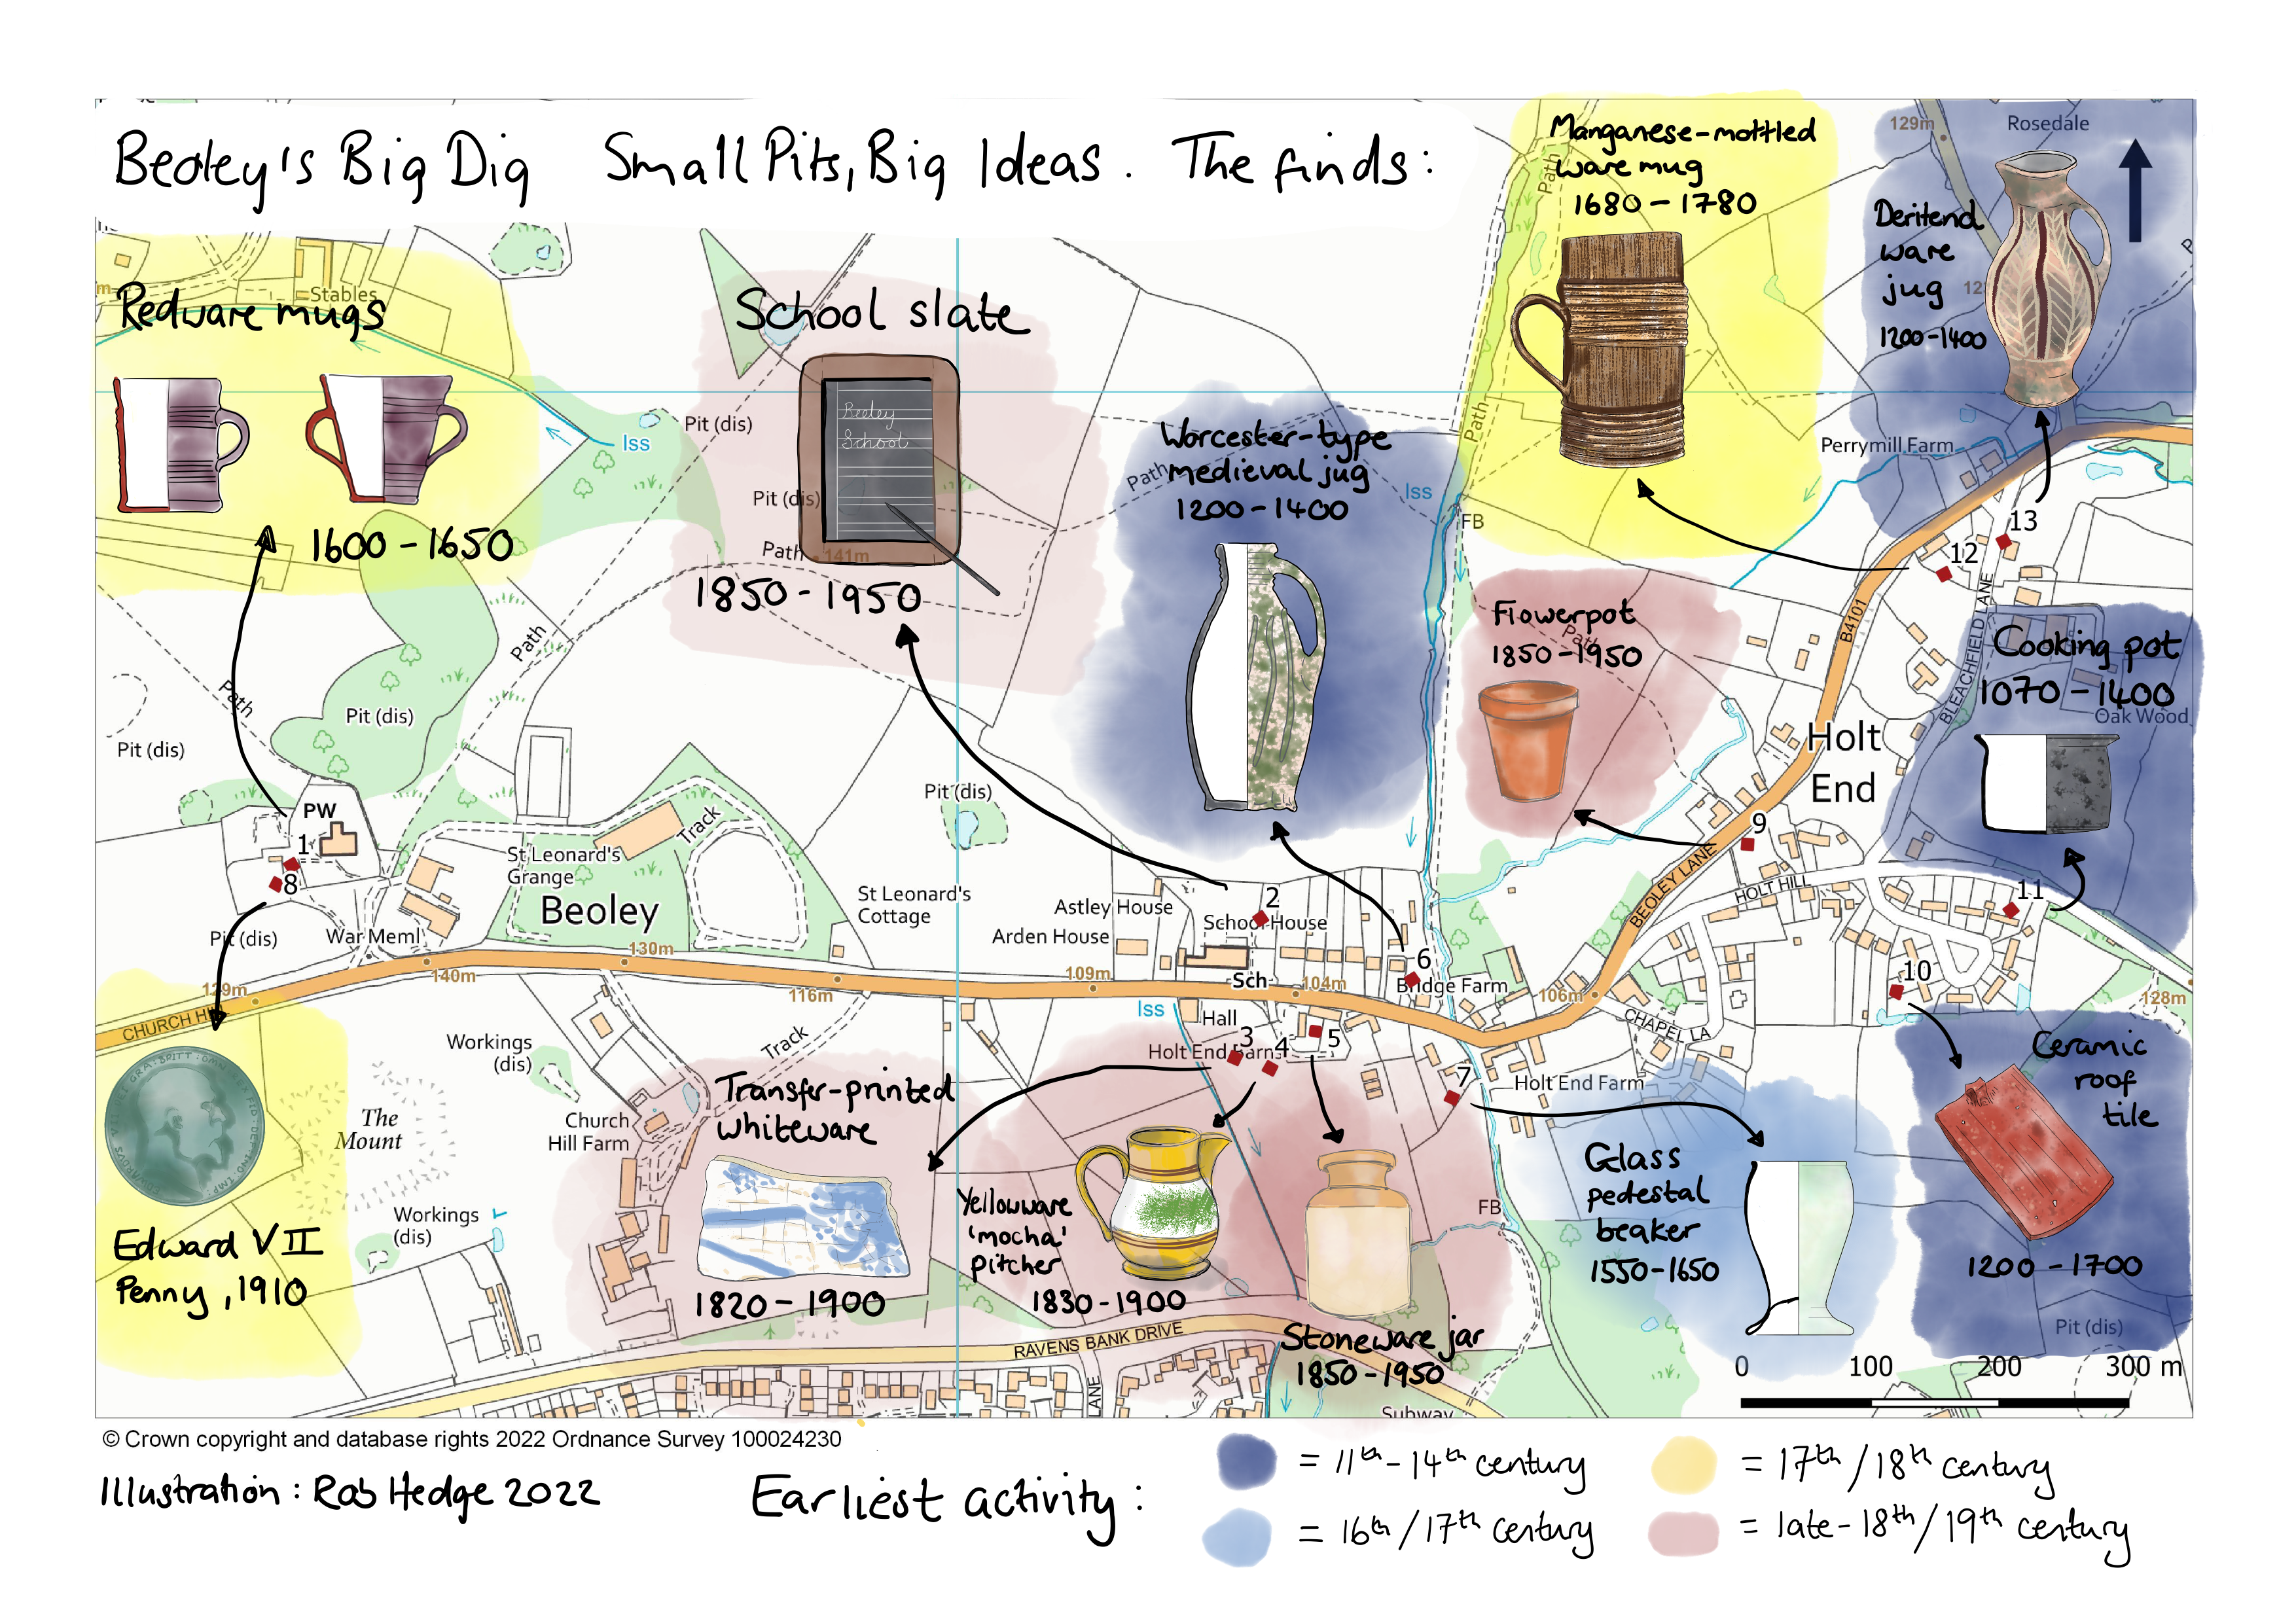 Beoley's Big Dig Small Pits, Big Ideas. The finds:
Manganese-mottled
ware mug
1680-1780
129m
Rosedale
Deritend
ware
jug
1200-1400
Stables
Redware mugs
1600-1650
School slate
Beoley
School
1850-1950
Pit (dis)
Pit (dis)
Path
141m
Iss
Worcester-type
medieval jug
1200-1400
Path
Iss
FB
Path
Path
Perrymill Farm
13
12
Flowerpot
Path
1850-1950
B4101
BLEACHFIELD LANE
Cooking pot
1070-1400
Oak Wood
Holt
End
Path
Path
Pit (dis)
Pit (dis)
Pit (dis)
PW
1
8
St Leonard's
Grange
Track
Beoley
St Leonard's
Cottage
Astley House
Arden House
2
School House
Sch
6
Bridge Farm
9
BEOLEY LANE
HOLT HILL
11
10
Pit (dis)
War Meml
129m
140m
130m
116m
109m
104m
106m
128m
CHURCH HI
CHAPEL LA
Iss
Hall
3
4
5
Holt End Barns
7
Holt End Farm
Workings
(dis)
Track
The
Mount
Church
Hill Farm
Workings
(dis)
Edward VII
Penny, 1910
Transfer-printed
whiteware
1820-1900
Yellowware
'mocha'
pitcher
1830-1900
Stoneware jar
1850-1950
FB
Glass
pedestal
beaker
1550-1650
Ceramic
roof
tile
1200-1700
Pit (dis)
RAVENS BANK DRIVE
LANE
Subway
0 100 200 300 m
© Crown copyright and database rights 2022 Ordnance Survey 100024230
Illustration: Rob Hedge 2022
Earliest activity:
= 11th-14th century
= 16th/17th century
= 17th/18th century
= late-18th/19th century